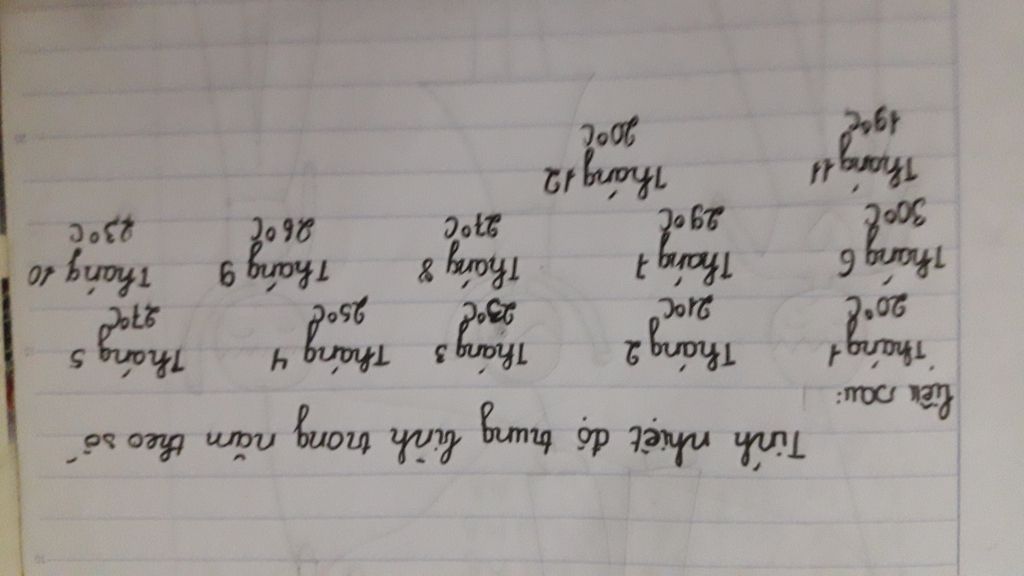 Tính nhiệt độ trung bình trong năm theo số
liệu sau:
Tháng 1 Tháng 2 Tháng 3 Tháng 4 Tháng 5
20°C 21°C 23°C 25°C 27°C
Tháng 6 Tháng 7 Tháng 8 Tháng 9 Tháng 10
30°C 29°C 27°C 26°C 23°C
Tháng 11 Tháng 12
19°C 20°C